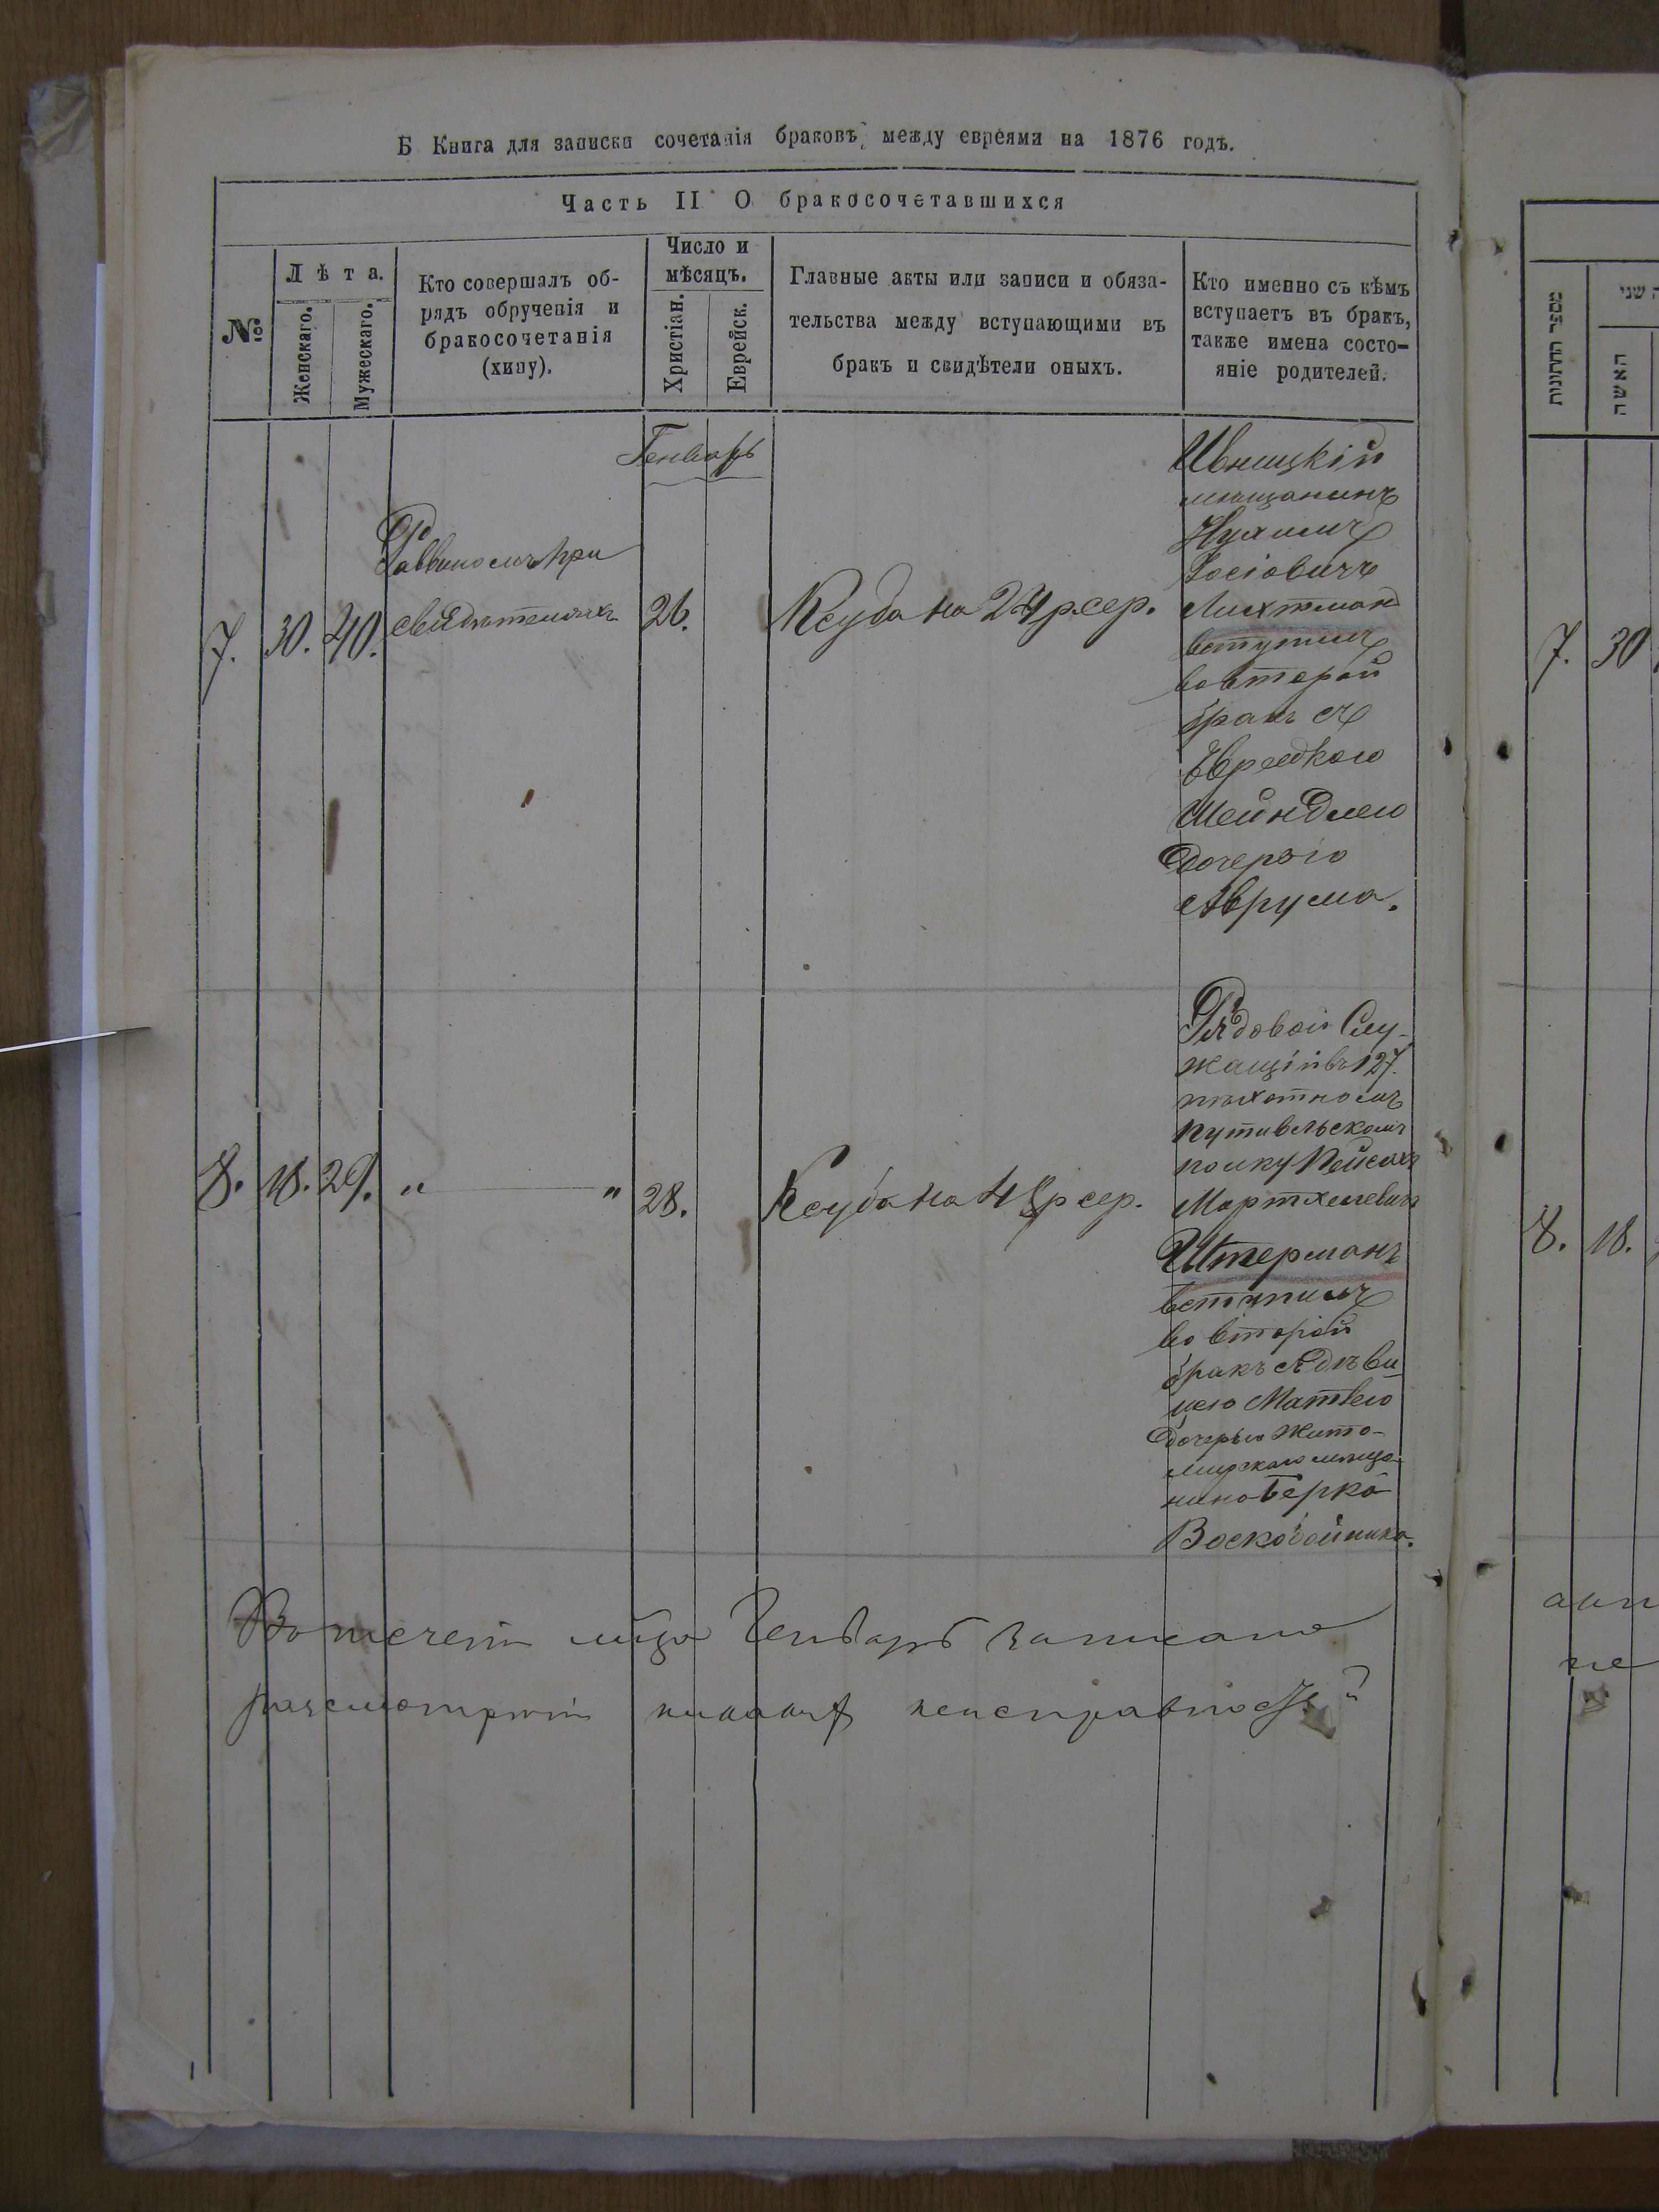 Б Книга для записки сочетанія браковъ, между евреями на 1876 годъ.
Часть II О бракосочетавшихся
№
Лѣта.
Женскаго.
Мужескаго.
Кто совершалъ об-
рядъ обрученія и
бракосочетанія
(хипу).
Число и
мѣсяцъ.
Христіан.
Еврейск.
Главные акты или записи и обяза-
тельства между вступающими въ
бракъ и свидѣтели оныхъ.
Кто именно съ кѣмъ
вступаетъ въ бракъ,
также имена состо-
яніе родителей.
Генварь
7.
30.
40.
Раввиномъ при
свидѣтеляхъ
26.
Ксуба на 24 р. сер.
Ивницкій
мѣщанинъ
Нухимъ
Іосіовичъ
Лихтман
вступилъ
во второй
бракъ съ
Еврейкою
Шейндлею
дочерью
Аврума.
8.
18.
29.
" "
28.
Ксуба на 48 р сер.
Рядовой Слу-
жащій въ 127.
пѣхотномъ
Путивльскомъ
полку Пейсахъ
Мортхелевичъ
Штерманъ
вступилъ
во второй
бракъ съ дѣви
цею Матлею
дочерью Жито-
мирскаго мѣща-
нина Берка
Воскобойника.
Въ теченіи мѣца Генварь записано
никакихъ неисправностей
מספר החתונות
האשה
שני
7.
30
8.
18.